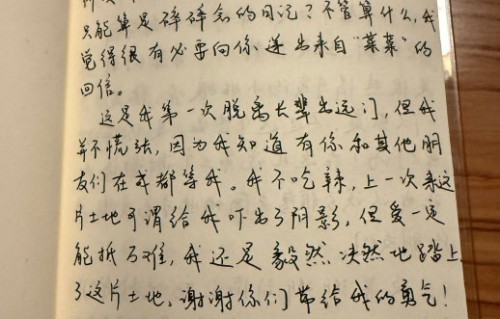 只能算是碎碎念的日记？不管算什么，我
觉得很有必要向你递出来自“菜菜”的
回信。
这是我第一次脱离长辈出远门，但我
并不慌张，因为我知道有你和其他朋
友们在成都等我。我不吃辣，上一次来这
片土地可谓给我吓出了阴影，但爱一定
能抵万难，我还是毅然决然地踏上
了这片土地，谢谢你们带给我的勇气！